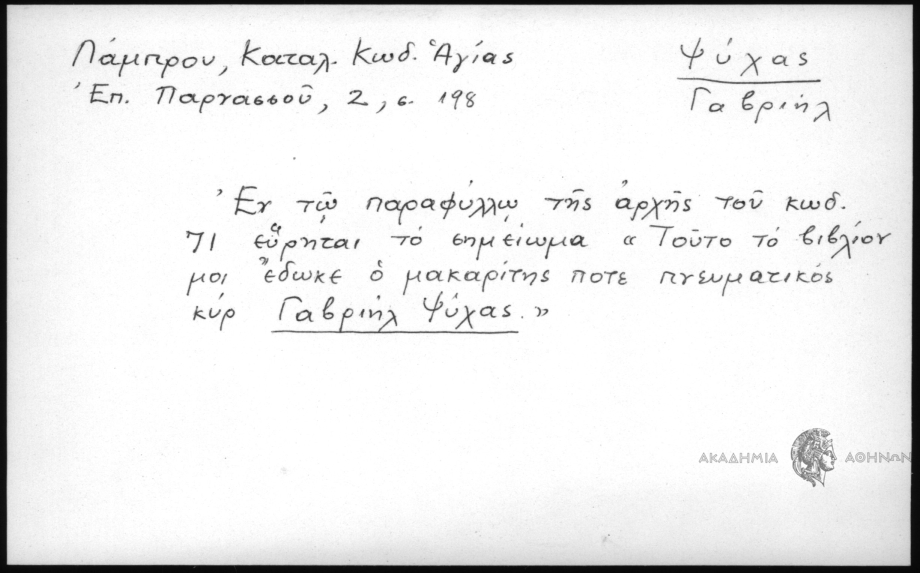 Λάμπρου, Καταλ. Κωδ. Ἁγίας
Ἐπ. Παρνασσοῦ, 2, σ. 198
Ψύχας
Γαβριήλ
Ἐν τῷ παραφύλλῳ τῆς ἀρχῆς τοῦ κωδ.
71 εὕρηται τὸ σημείωμα « Τοῦτο τὸ βιβλίον
μοι ἔδωκε ὁ μακαρίτης ποτε πνευματικός
κύρ Γαβριήλ Ψύχας. »
ΑΚΑΔΗΜΙΑ ΑΘΗΝΩΝ